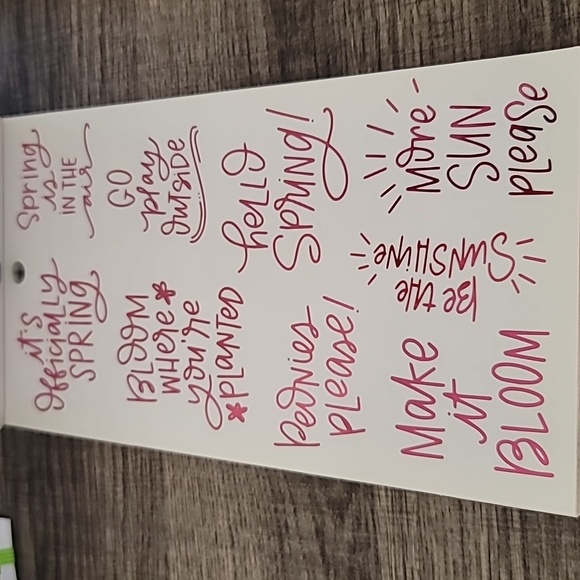 it's
officially
SPRING
Spring
is
IN THE
air
BLOOM
WHERE
you're
PLANTED
GO
play
OUTSIDE
Peonies
PLEASE!
hello
SPRING!
Make
it
BLOOM
Be THE
SUNSHINE
More
SUN
PLEASE